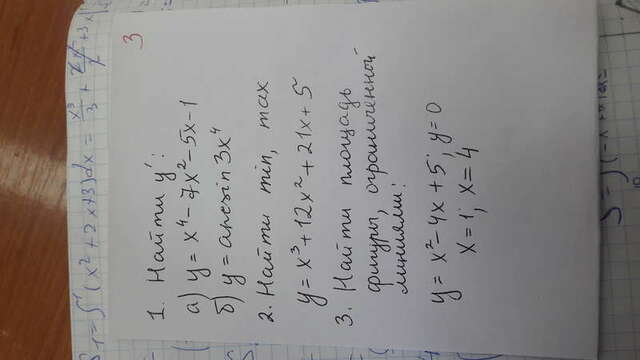 S₁ = ∫¹ (x² + 2x + 3) dx = x³/3 + 2x²/2 + 3x
3
1. Найти y':
а) y = x⁴ - 7x² - 5x - 1
б) y = arcsin 3x⁴
2. Найти min, max
y = x³ + 12x² + 21x + 5
3. Найти площадь
фигуры, ограниченной
линиями:
y = x² - 4x + 5; y = 0
x = 1; x = 4